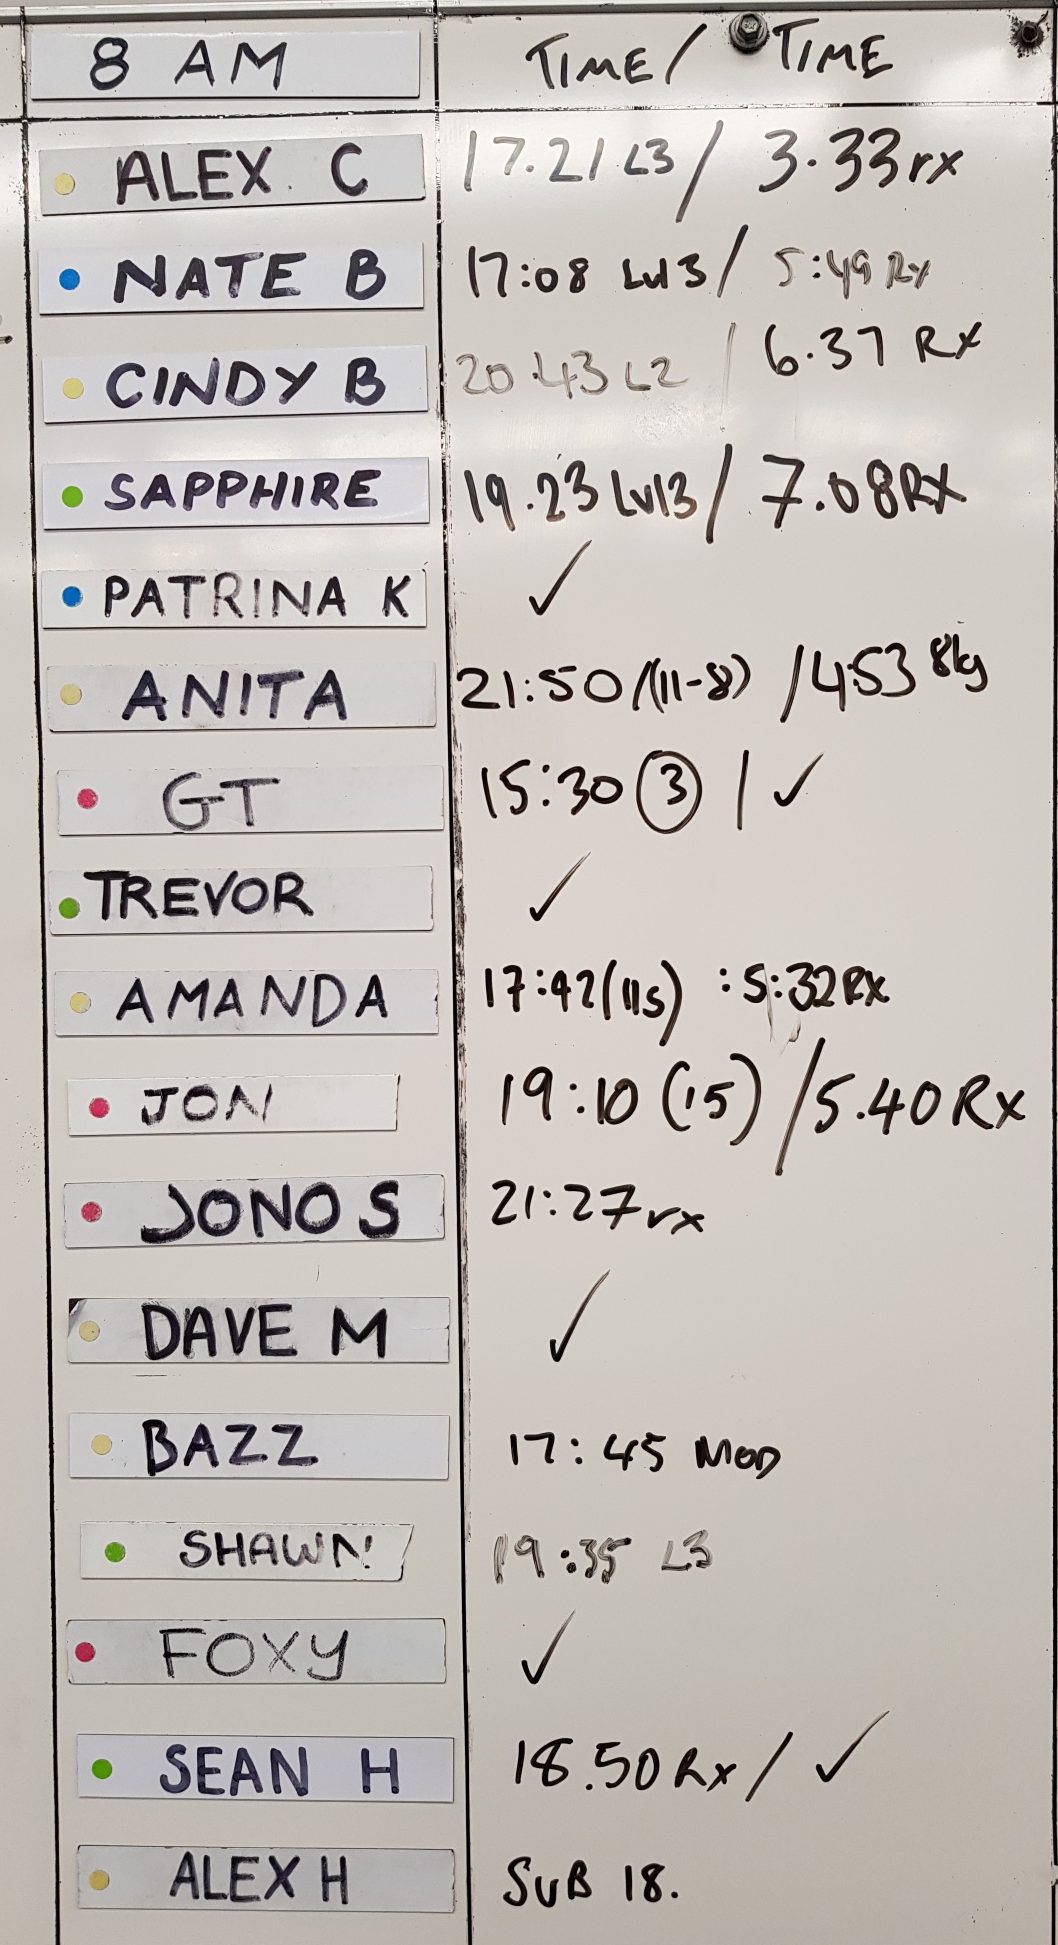 8 AM TIME / TIME
ALEX C 17.21 L3 / 3.33 rx
NATE B 17:08 Lvl3 / 5:49 Rx
CINDY B 20.43 L2 / 6.37 RX
SAPPHIRE 19.23 Lvl3 / 7.08 RX
PATRINA K ✓
ANITA 21:50 /(11-8) / 4:53 8kg
GT 15:30 ③ / ✓
TREVOR ✓
AMANDA 17:42 (11s) : 5:32 Rx
JON 19:10 (15) / 5.40 Rx
JONO S 21:27 rx
DAVE M ✓
BAZZ 17:45 MOD
SHAWN 19:35 L3
FOXY ✓
SEAN H 18.50 Rx / ✓
ALEX H SUB 18.